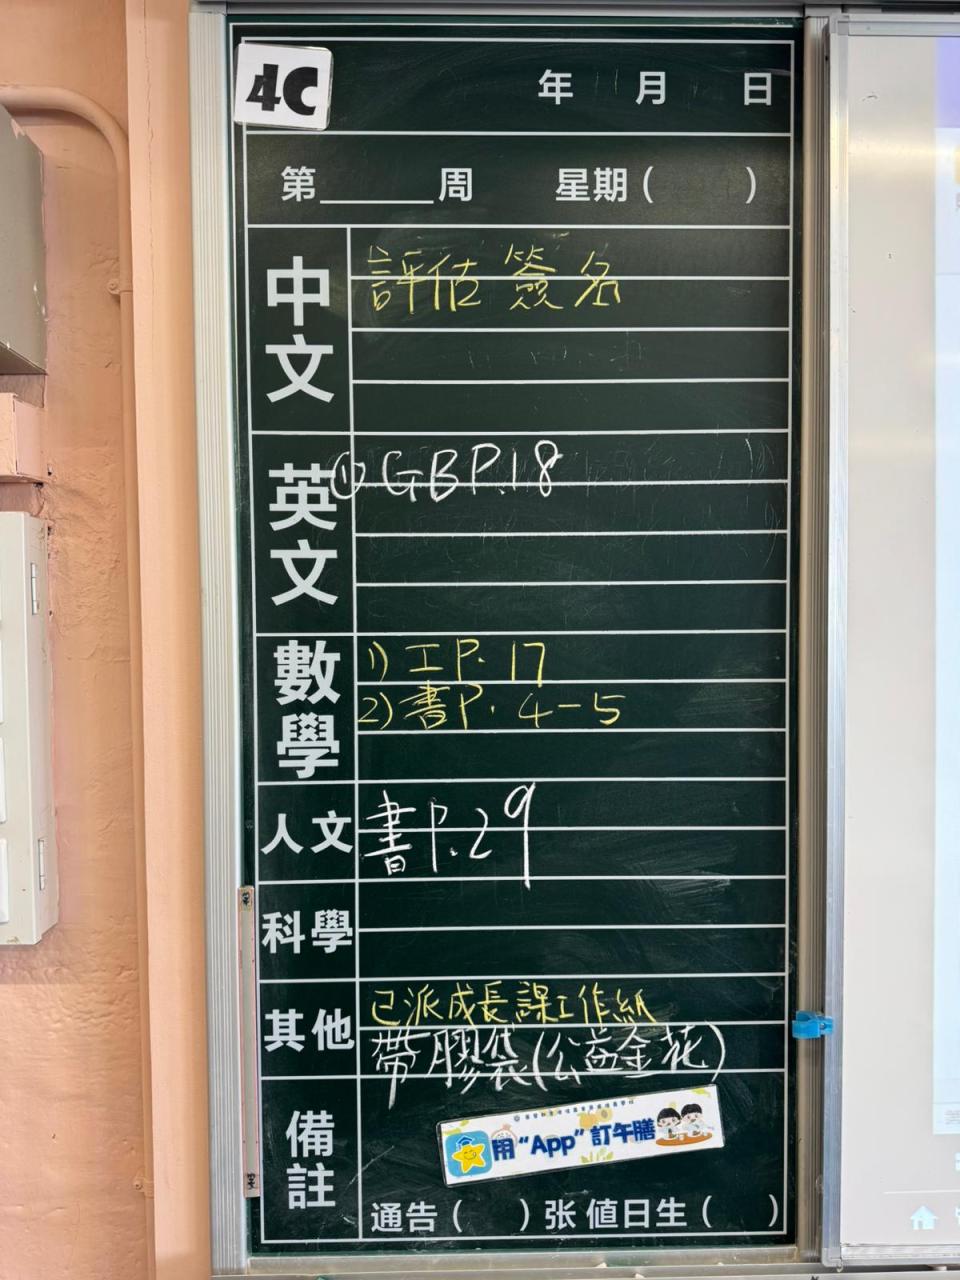 4C
年 月 日
第______周 星期( )
中文
評估 簽名
英文
① GB P.18
數學
1) 工 P. 17
2) 書 P. 4-5
人文
書 P.29
科學
其他
已派成長課工作紙
帶膠袋(公益金花)
備註
用“App”訂午膳
通告( )张 值日生( )